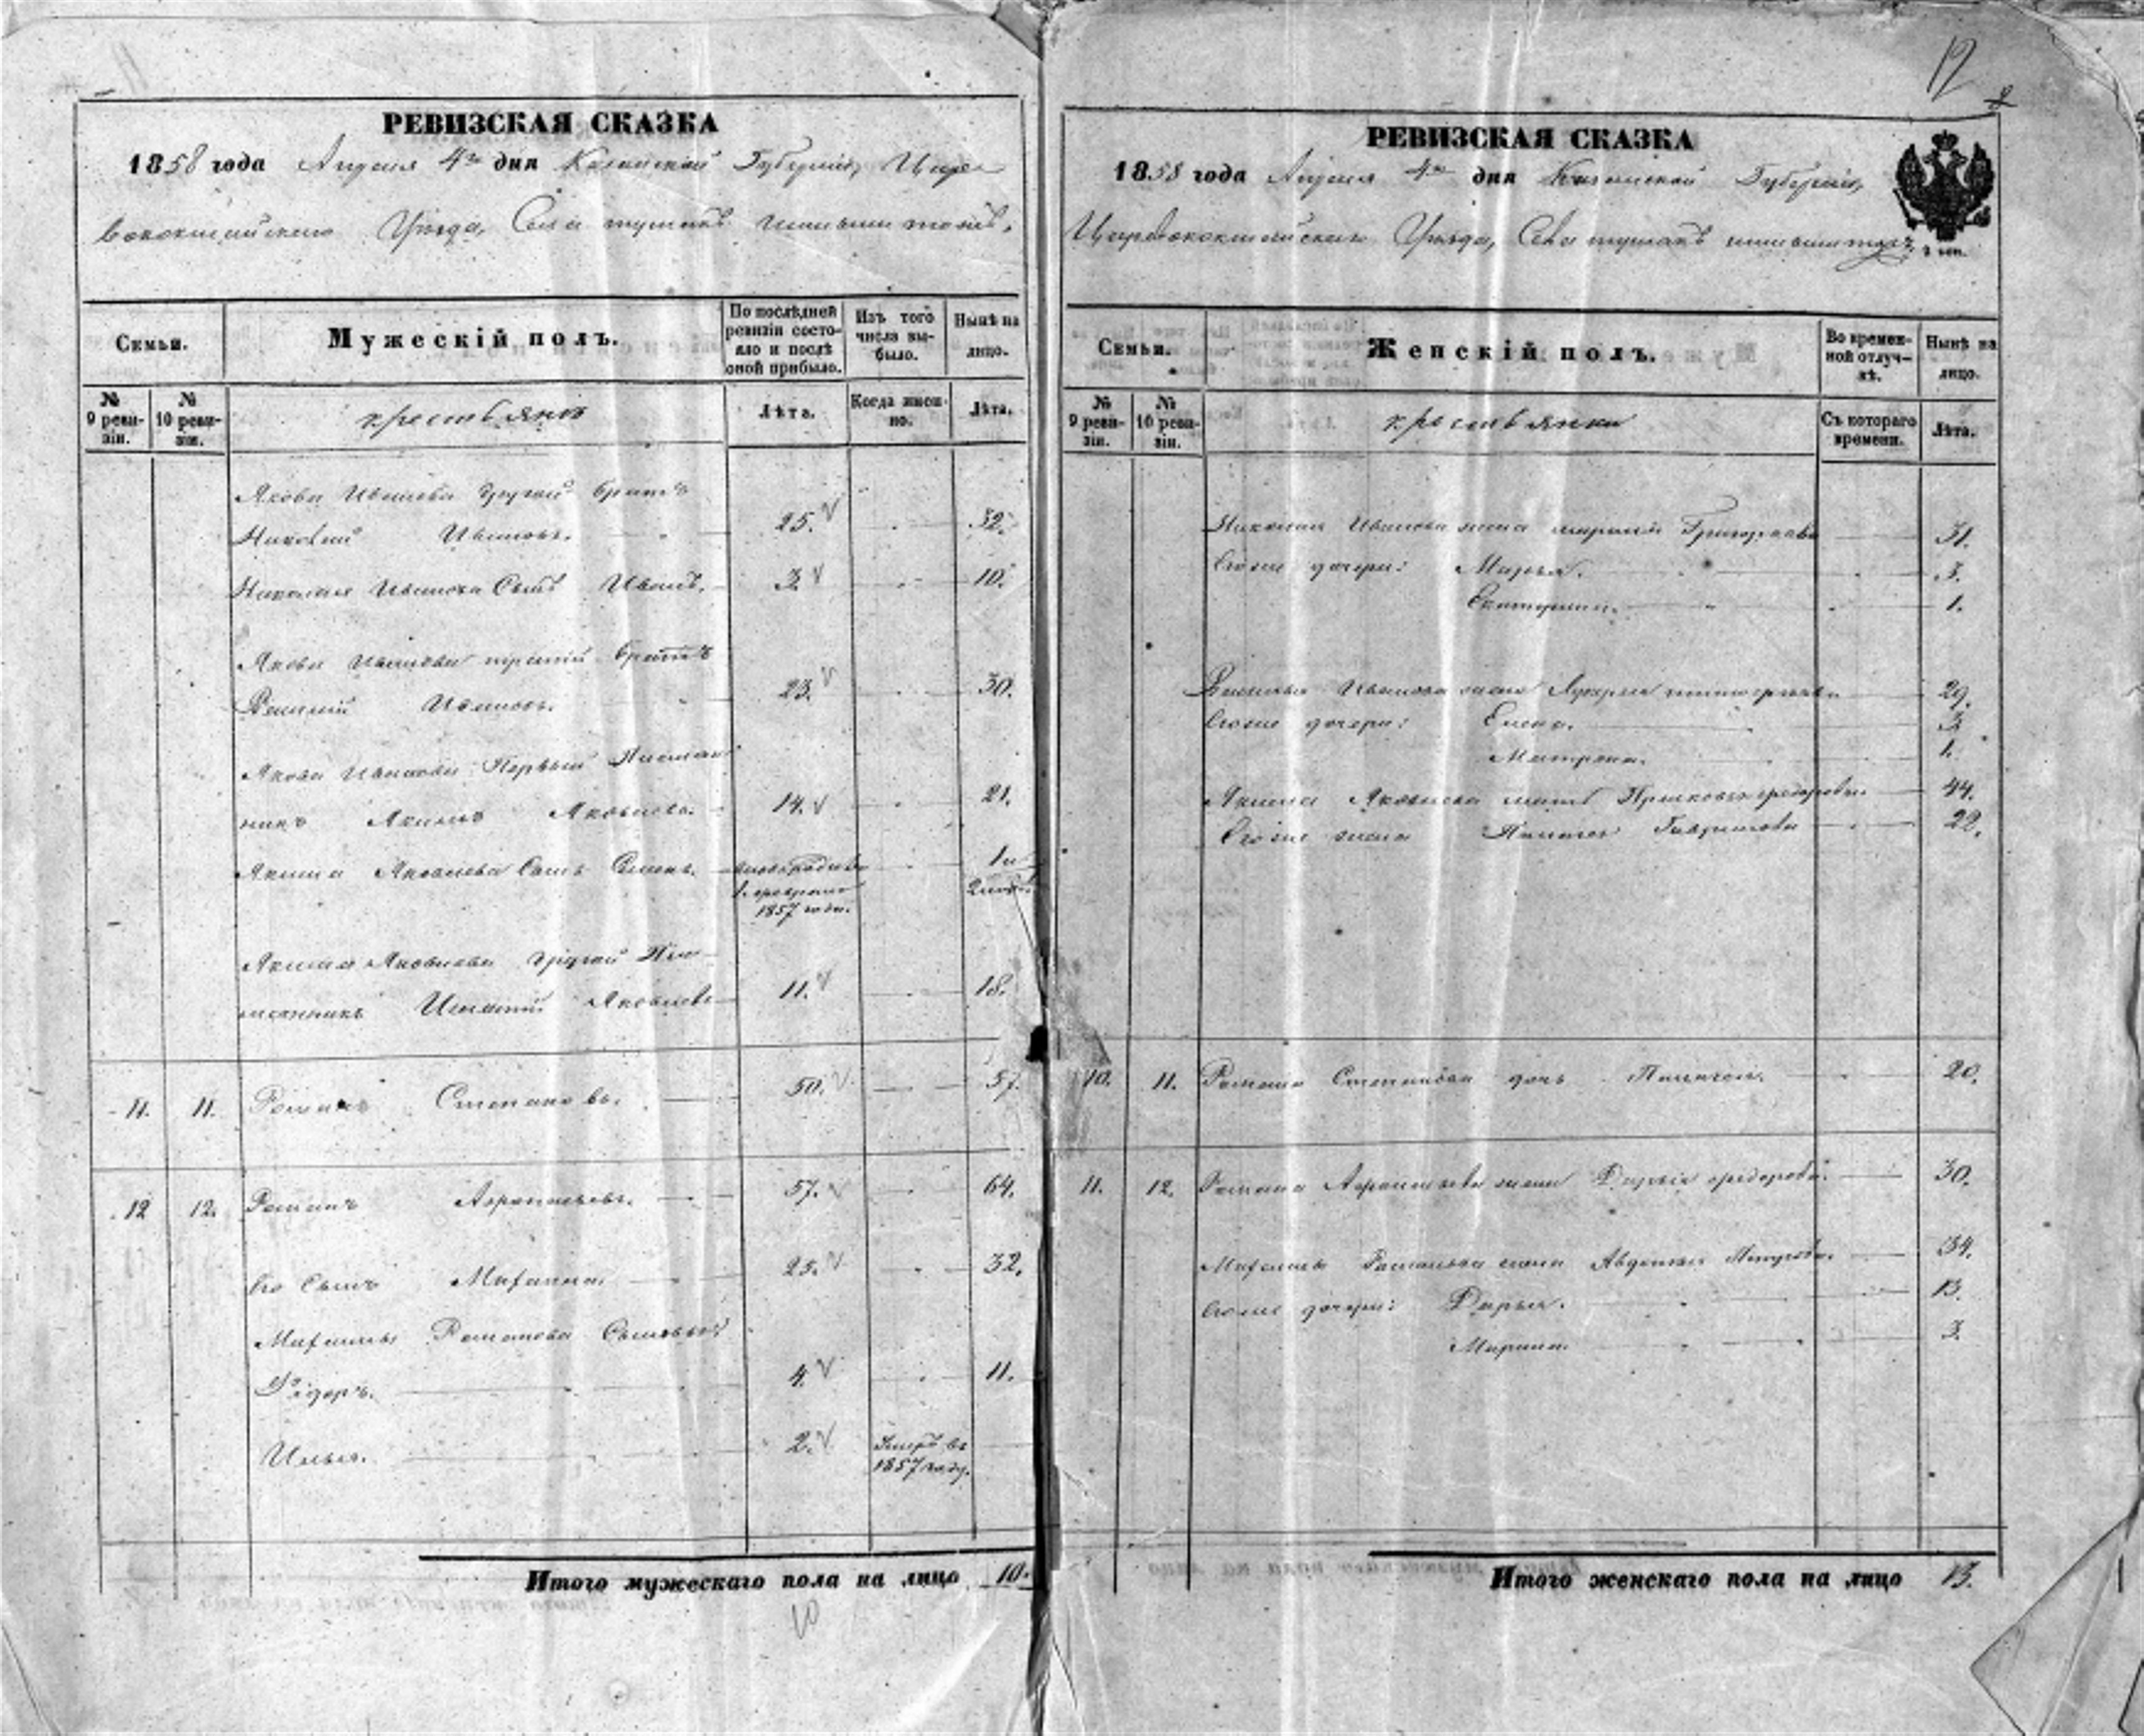 12
РЕВИЗСКАЯ СКАЗКА
1858 года Апреля 4го дня Казанской Губернии, Царе
вококшайскаго Уѣзда, Села
Семьи.
Мужескій полъ.
По послѣдней ревизіи состо-
яло и послѣ
оной прибыло.
Изъ того
числа вы-
было.
Нынѣ на
лицо.
№
9 реви-
зіи.
№
10 реви-
зіи.
крестьяне
Лѣта.
Когда имен-
но.
Лѣта.
Якова Иванова другой братъ
Николай Ивановъ. 25. 32.
Николая Иванова Сынъ Иванъ. 3 10.
Якова Иванова третій братъ
Василий Ивановъ. 23. 30.
Якова Иванова Первый
Акимъ Яковлевъ. 14. 21.
Акима Яковлева Сынъ Семенъ. 1 и
1 февраля
1857 года.
Акима Яковлева другой
Яковлевъ 11. 18.
11. 11. Романъ Степановъ. 50. 57.
12 12. Романъ 57. 64.
Его Сынъ Михаила 25. 32.
Михаилы Романова Сыновья
Федоръ. 4. 11.
Илья. 2. Умеръ въ
1857 году.
Итого мужескаго пола на лицо 10.
10
РЕВИЗСКАЯ СКАЗКА
1858 года Апреля 4го дня Казанской Губернии,
Царевококшайскаго Уѣзда, Села
2 коп.
Семьи.
Женскій полъ.
Во времен-
ной отлуч-
кѣ.
Нынѣ на
лицо.
№
9 реви-
зіи.
№
10 реви-
зіи.
крестьянки
Съ котораго
времени.
Лѣта.
Николая Иванова жена Григорьева 31.
Его же дочери: Марья. 3.
Екатерина. 1.
Василья Иванова жена 29.
Его же дочери: Елена. 3
Матрена. 1.
Акима Яковлева мать Прасковья Федорова 44.
Его же жена Гаврилова 22.
10. 11. Романа Степанова дочь 20.
11. 12. Романа жена Дарья Федорова. 30.
Михаилы Романова жена Авдотья Петрова. 34.
Его же дочери: Дарья. 13.
Марина. 3.
Итого женскаго пола на лицо 13.